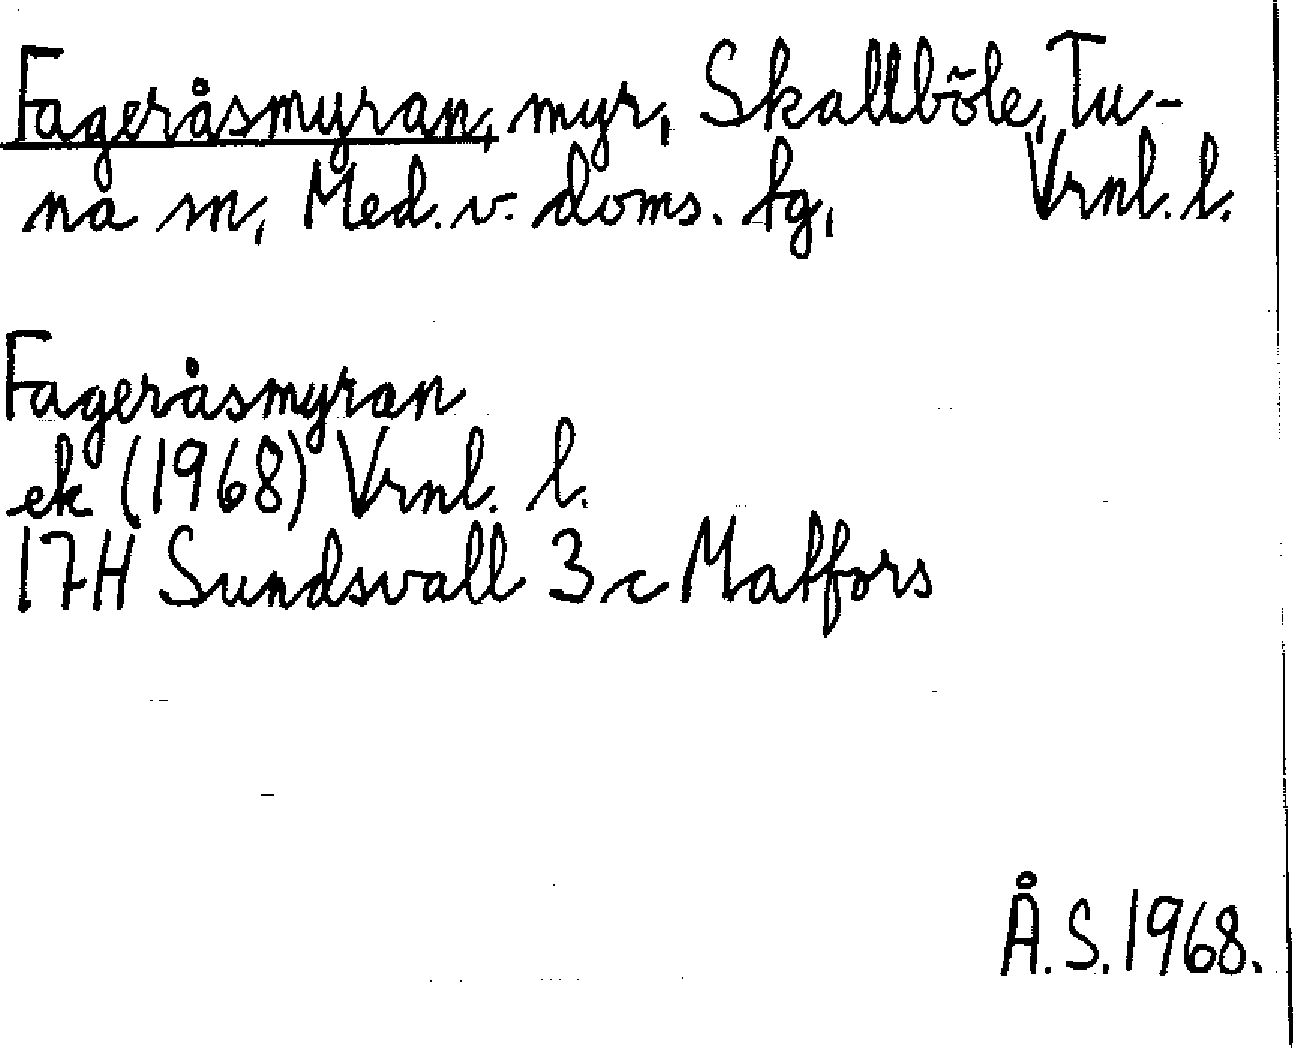 Fageråsmyran, myr, Skallböle, Tu-
na sn, Med. v. doms. tg, Vrnl. l.
Fageråsmyran
ek (1968) Vrnl. l.
17H Sundsvall 3 c Matfors
Å.S. 1968.